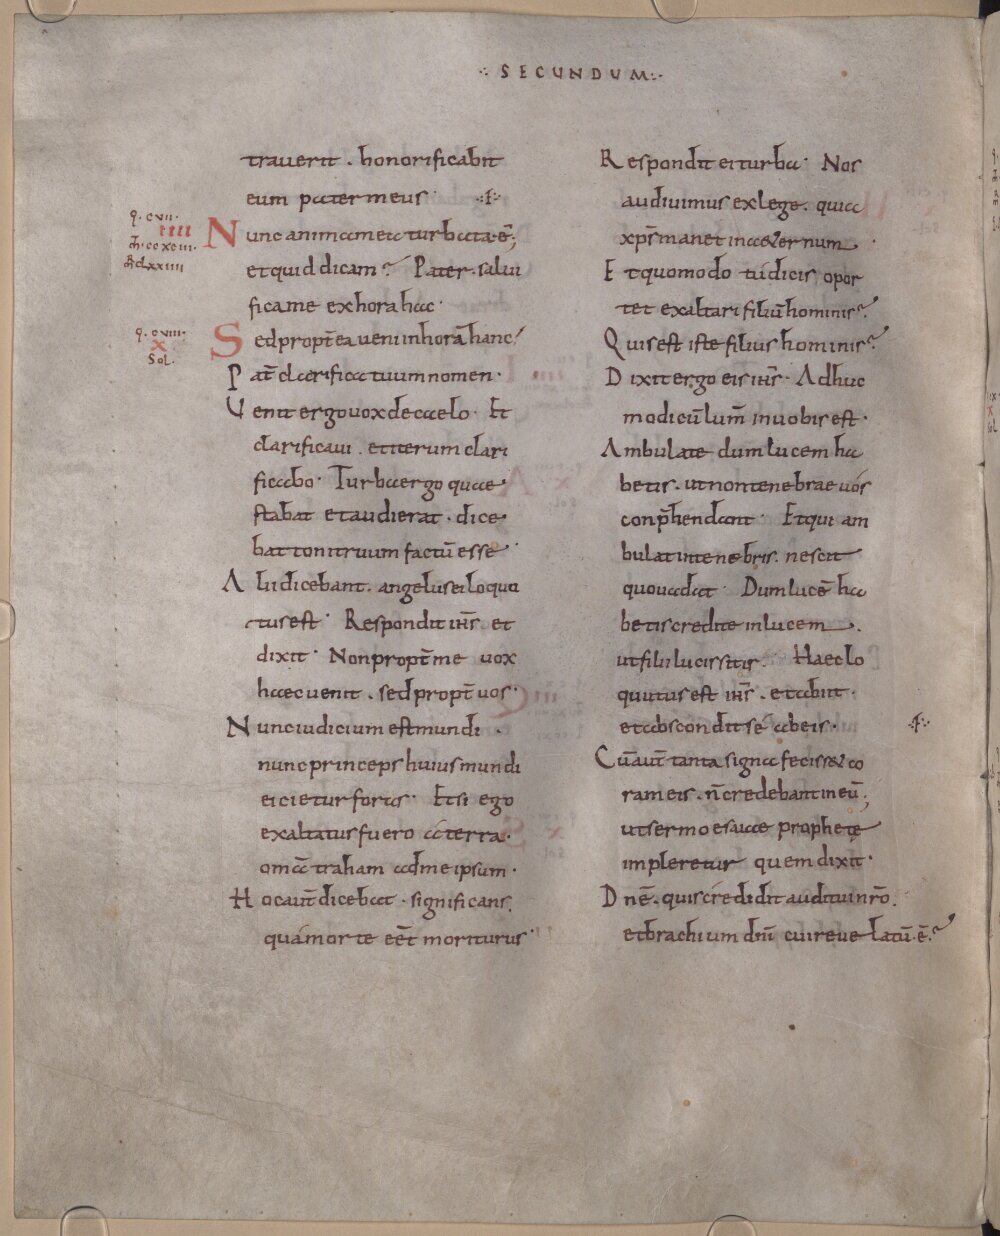 ·:· SECUNDUM ·:·
trauerit . honorificabit
eum pater meus · ·⁒·
q. cvii.
iiii
m̄. ccxciii.
m̄r clxxiiii
Nunc anima mea turbata · ē ;
et quid dicam ? Pater · salui
fica me ex hora hac ·
q. cviii.
x
Sol.
Sed propt̄ea ueni in horā hanc !
Pat̄ clarifica tuum nomen ·
Uenit ergo uox de caelo · Et
clarificaui . et iterum clari
ficabo · Turba ergo quae
stabat et audierat · dice
bat tonitruum factū esse ·
Alii dicebant . angelus ei loquu
tus est · Respondit ih̄s et
dixit · Non propt̄ me uox
haec uenit . sed propt̄ uos ·
Nunc iudicium est mundi ·
nunc princeps huius mundi
eicietur foras · Et si ego
exaltatus fuero a terra ·
om̄a traham ad me ipsum ·
Hoc aut̄ dicebat · significans
qua morte eēt moriturus ·
Respondit ei turba · Nos
audiuimus ex lege . quia
xp̄s manet in aeternum ·
Et quomodo tu dicis opor
tet exaltari filiū hominis ?
Quis est iste filius hominis ?
Dixit ergo eis ih̄s · Adhuc
modicū lum̄ in uobis est ·
Ambulate dum lucem ha
betis . ut non tenebrae uos
conp̄hendant · Et qui am
bulat in tenebris . nescit
quo uadat · Dum lucē ha
betis credite in lucem .
ut filii lucis sitis · Haec lo
quutus est ih̄s . et abiit ·
et abscondit se ab eis · ·⁒·
Cū aut̄ tanta signa fecisset co
ram eis . n̄ credebant in eū ;
ut sermo esaiae prophetę
impleretur quem dixit ·
Dnē . quis credidit auditui nr̄o .
et brachium dn̄i cui reuelatū · ē ?